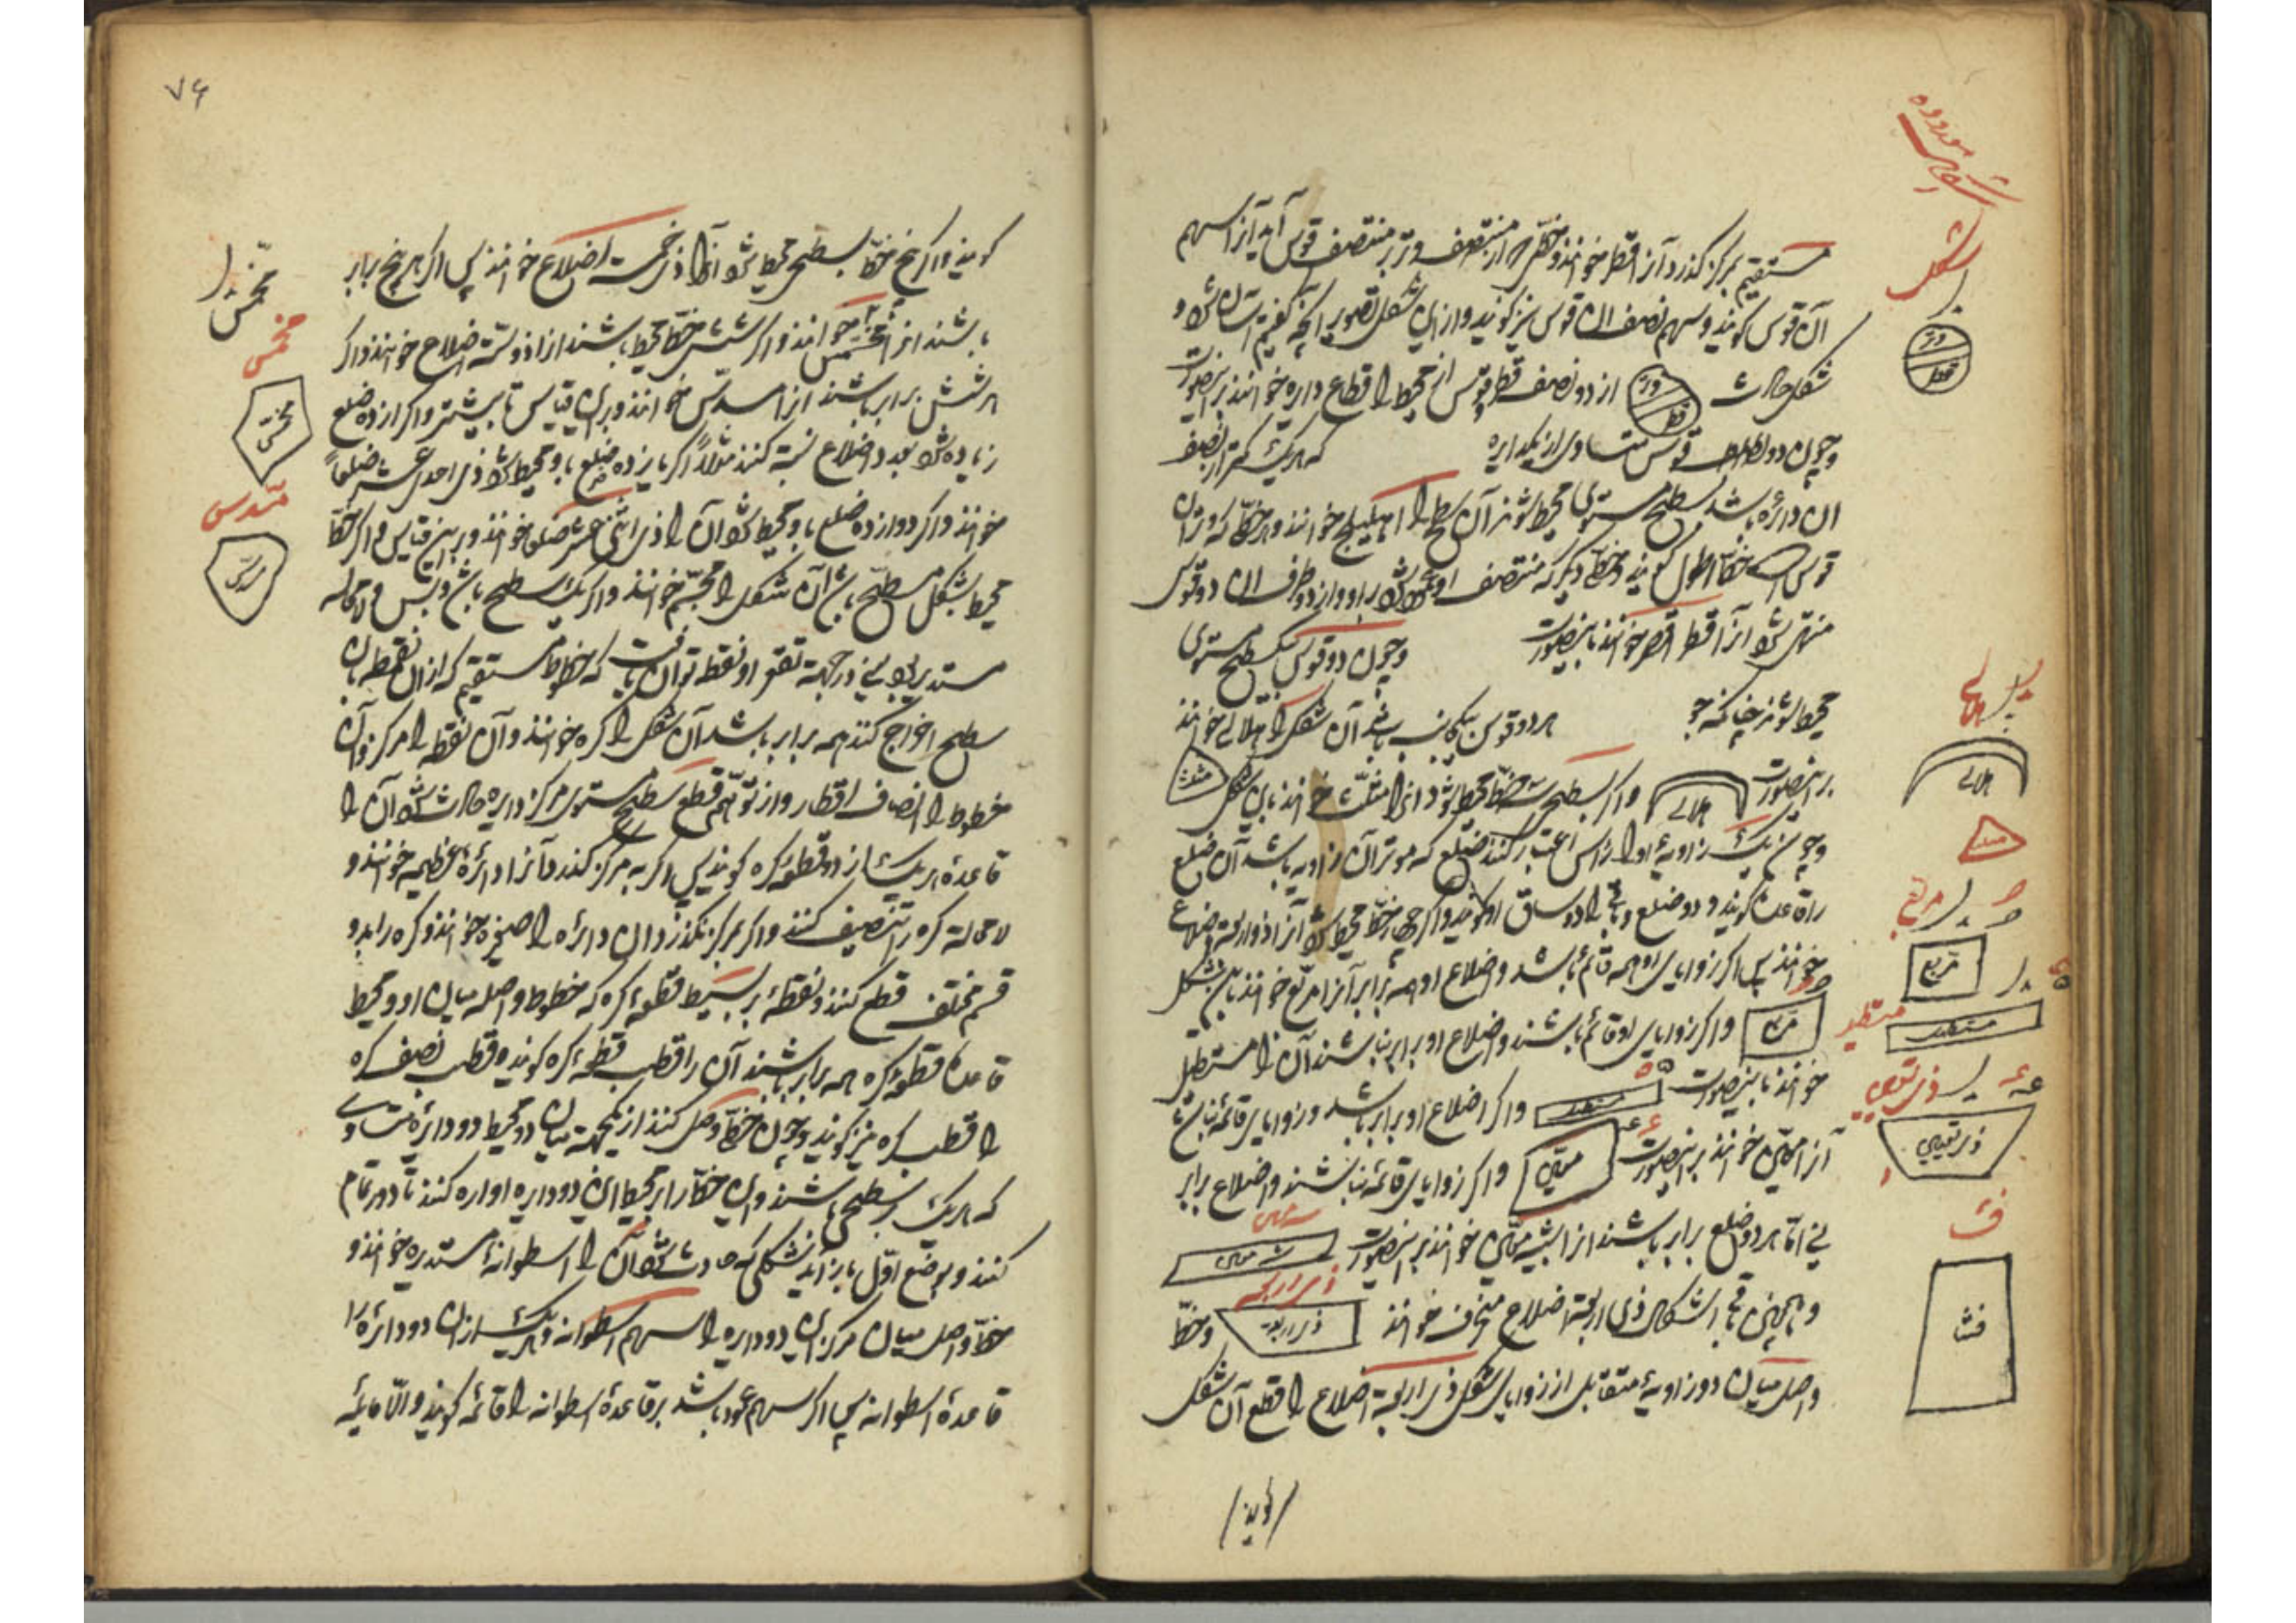 مستقیم بمرکز گذرد آنرا قطر خوانند و خطی که از منتصف وتر بمنتصف قوس آید آنرا سهم
آن قوس گویند و سهم نصف آن قوس نیز گویند و ازین شکل تصویر آنچه گفتیم آسان شود و
شکل حادث از دو نصف قطر و قوس از محیط را قطاع دایره خوانند برینصورت
وتر
قطر
و چون دو قوس متساوی از یکدایره که هریک کمتر از نصف
آن دائره باشد بسطح مستوی محیط شوند آن سطح را اهلیلج خوانند و هر خطی که وتر آن
قوس است خط اطول گویند و خطی دیگر که منتصف او عمود شود بر او و از دو طرف آن دو قوس
منتهی شود آنرا قطر اقصر خوانند باینصورت و چون دو قوس بسطح مستوی
محیط شوند چنانکه هر دو قوس بیکجانب باشد آن شکل را هلالی خوانند
برینصورت هلالی و اگر بسطحی سه خط محیط شود آنرا مثلث خوانند باین شکل مثلث
و چون یک زاویهٔ او را رأس اعتبار کنند ضلعی که موتر آن زاویه باشد آن ضلع
را قاعده گویند و دو ضلع باقی را دو ساق او گویند و اگر چهار خط محیط شود آنرا ذو اربعة اضلاع
خوانند پس اگر زوایای او همه قائمه باشد و اضلاع او همه برابر آنرا مربع خوانند باین شکل
مربع و اگر زوایای او قائمه باشند و اضلاع او برابر نباشند آن را مستطیل
خوانند باینصورت مستطیل و اگر اضلاع او برابر باشد و زوایا قائمه نباشد
آنرا معین خوانند برینصورت معین و اگر زوایای قائمه نباشند و اضلاع برابر
نی اما هر دو ضلع برابر باشند آنرا شبیه معین خوانند برینصورت شبه معین
و همچنین باقی اشکال ذی اربعة اضلاع منحرف خوانند و خط
واصل میان دو زاویهٔ متقابل از زوایای شکل ذی اربعة اضلاع را قطع آن شکل
گویند
شکل
وتر
قطر
هلالی
هلالی
مثلث
مربع
مستطیل
مستطیل
۷۶
گویند و اگر پنج خط بسطحی محیط شود آنرا ذی خمسة اضلاع خوانند پس اگر هر پنج برابر
باشند آنرا مخمس خوانند و اگر شش خط محیط باشند آنرا ذو ستة اضلاع خوانند و اگر
هر شش برابر باشند آنرا مسدس خوانند و برین قیاس تا بیشتر و اگر از ده ضلع
زیاده شود بعدد اضلاع نسبة کنند مثلاً اگر یازده ضلع باو محیط شود ذی احدی عشر ضلعاً
خوانند و اگر دوازده ضلع باو محیط شود آن را ذی اثنی عشر ضلعا خوانند و برین قیاس و اگر خط
محیط بشکل مسطح باشد آن شکل را مجسم خوانند و اگر یک سطح باشد و بس و لامحاله
مستدیر بود یعنی در جهة تقعر او نقطه توان یافت که خطوط مستقیم که از آن نقطه بآن
سطح اخراج کنند همه برابر باشد آن شکل را کره خوانند و آن نقطه را مرکز و آن
خطوط را انصاف اقطار و از توهم قطع سطح مستوی مر کره را دایره حادث شود آن را
قاعدهٔ هر یک از دو قطعهٔ کره گویند پس اگر به مرکز گذرد آنرا دائرهٔ عظیمه خوانند و
لامحاله کره را تنصیف کند و اگر بمرکز نگذرد آن دائره را صغیره خوانند و کره را بدو
قسم مختلف قطع کنند و نقطهٔ بر بسیط قطعهٔ کره که خطوط واصله میان او و محیط
قاعده قطعهٔ کره همه برابر باشند آن را قطب قطعهٔ کره گویند و قطب نصف کره
را قطب کره نیز گویند و چون خطی وصل کنند از یکجهة میان دو محیط دو دائرهٔ متساوی
که هر یک بر سطحی باشند و این خط را بر محیط این دو دایره اداره کنند تا دور تمام
کنند و بوضع اول باز آید شکلی که حادث شود آن را اسطوانهٔ مستدیره خوانند و
خط واصل میان مرکز این دو دایره را سهم اسطوانه و هر یک از آن دو دائره را
قاعدهٔ اسطوانه پس اگر سهم عمود باشد بر قاعدهٔ اسطوانه را قائمه گویند و الا مایله
مخمس
مخمس
مخمس
مسدس
مسدس